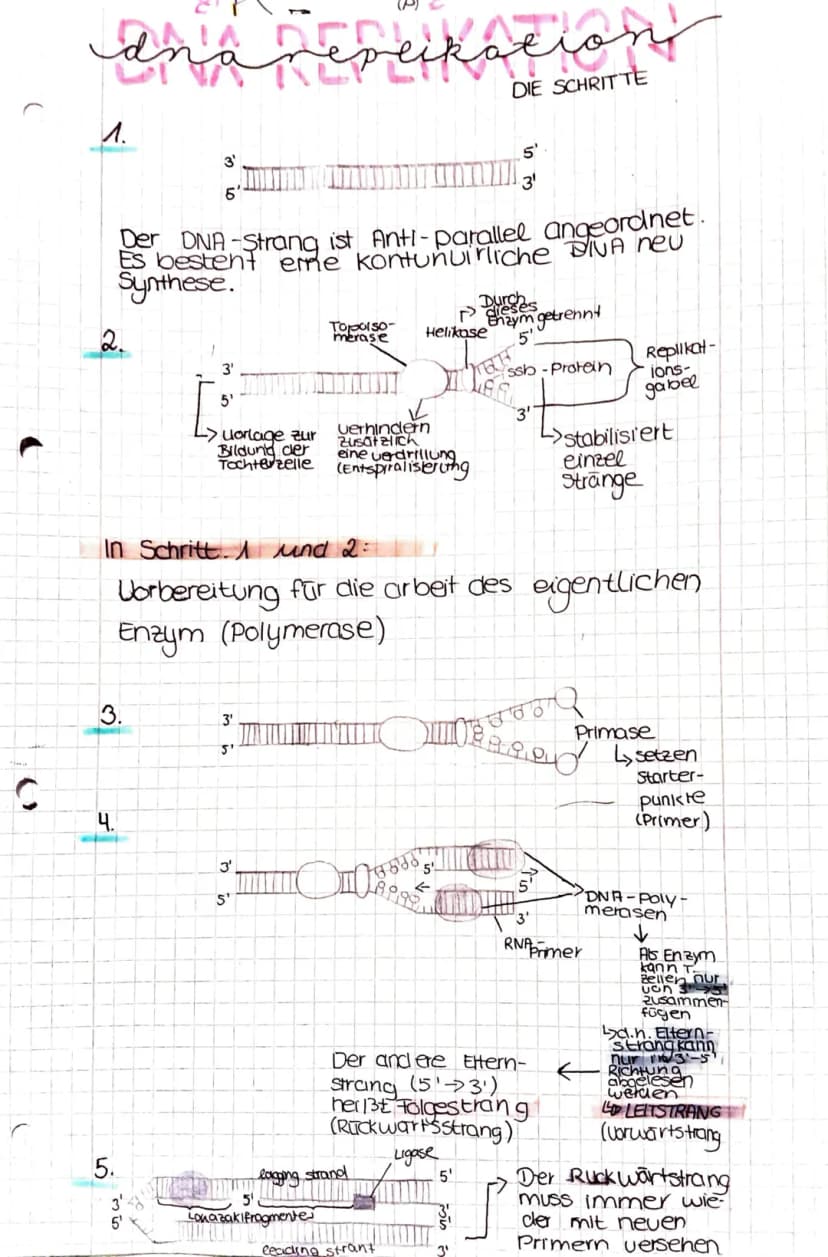 DNA REPLIKATION
dna replikation
DIE SCHRITTE
1.
3' 5'
5' 3'
Der DNA-Strang ist Anti-parallel angeordnet.
Es besteht eine kontunuirliche DNA neu
Synthese.
2.
Topoiso-
merase
Helikase
Durch
dieses
Enzym getrennt
3'
5'
5'
ssb-Protein
3'
Replikat-
ions-
gabel
Vorlage zur
Bildung der
Tochterzelle
verhindern
zusätzlich
eine verdrillung
(Entspiralisierung
stabilisiert
einzel
Stränge
In Schritt 1 und 2:
Vorbereitung für die arbeit des eigentlichen
Enzym (Polymerase)
3.
3'
5'
Primase
setzen
Starter-
punkte
(Primer)
4.
3'
5'
5'
5'
3'
DNA-Poly-
merasen
RNA-Primer
Als Enzym
kann T.
zellen nur
von
zusammen-
fügen
d.h. Eltern-
strang kann
nur in 3'-5'
Richtung
abgelesen
werden
LEITSTRANG
(Vorwärtstrang
Der andere Eltern-
strang (5'→3')
heißt Folgestrang
(Rückwärtsstrang)
5.
Ligase
lagging strand
5'
3'
5'
5'
3'
5'
3'
leading strant
Der Ruckwärtstrang
muss immer wie-
der mit neuen
Primern versehen